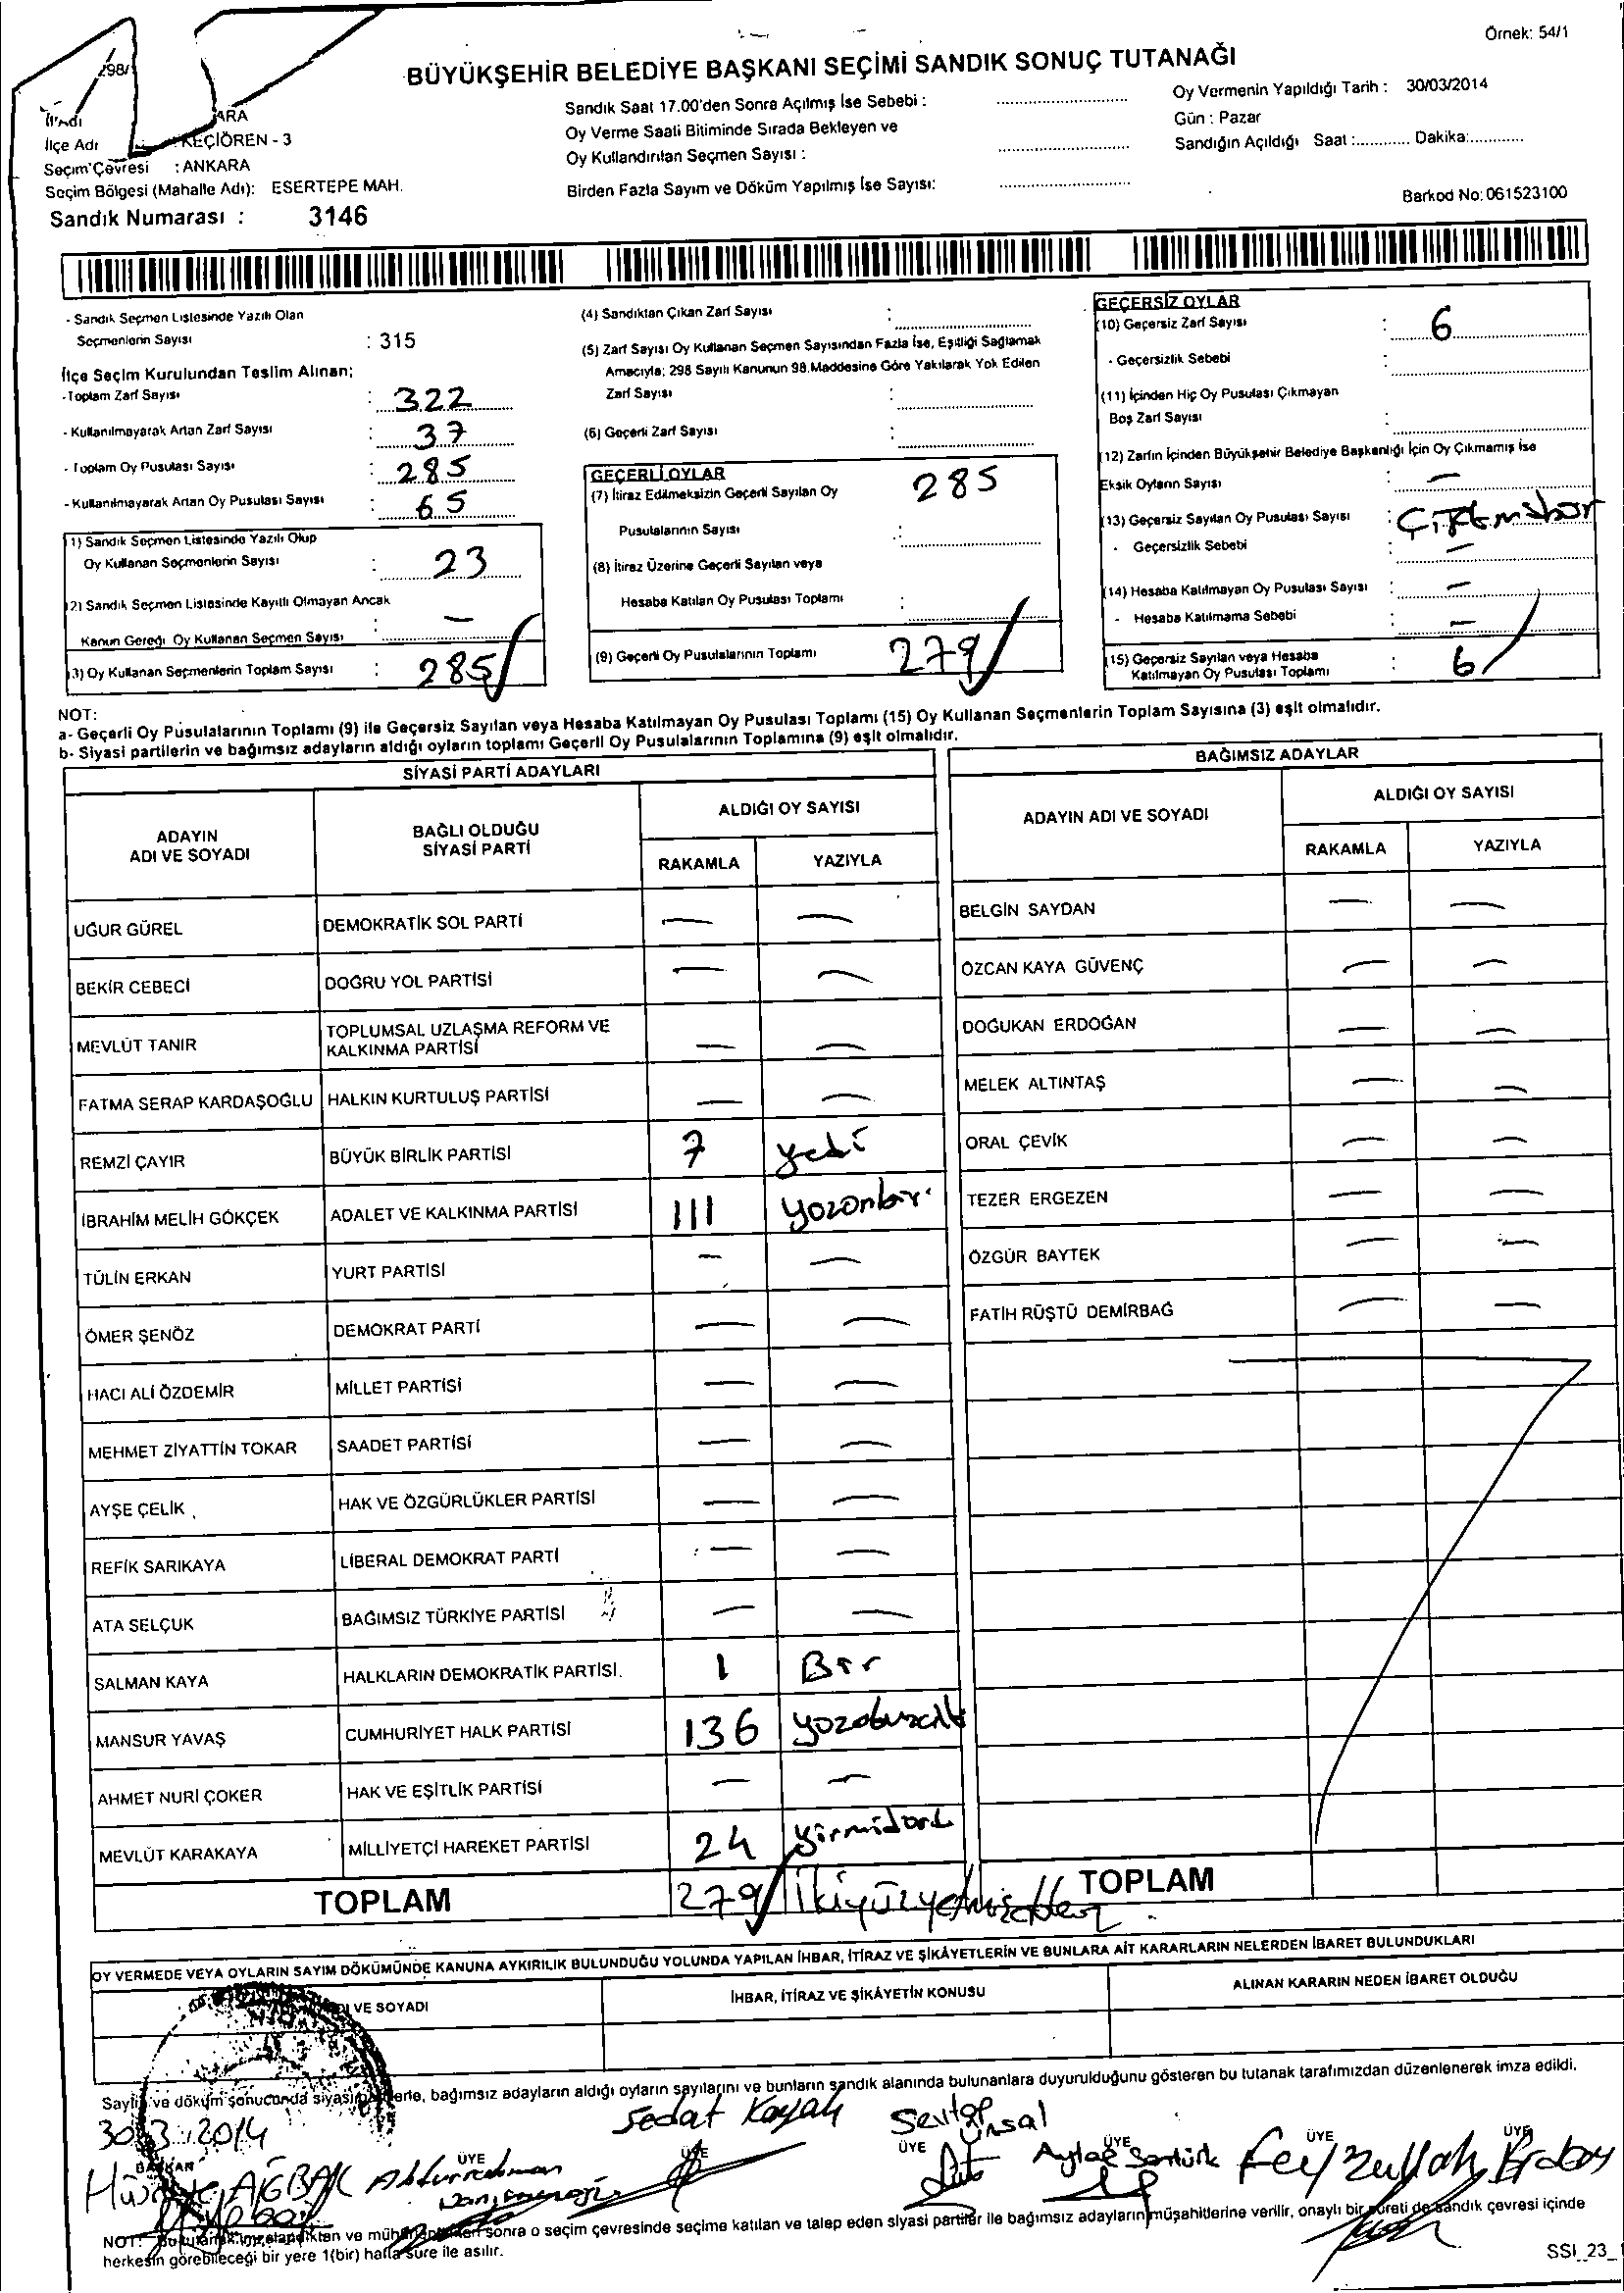 Örnek: 54/1
BÜYÜKŞEHİR BELEDİYE BAŞKANI SEÇİMİ SANDIK SONUÇ TUTANAĞI
298/
ARA
İlçe Adı KEÇİÖREN - 3
Seçim Çevresi : ANKARA
Seçim Bölgesi (Mahalle Adı): ESERTEPE MAH.
Sandık Numarası : 3146
Sandık Saat 17.00'den Sonra Açılmış İse Sebebi :
Oy Verme Saati Bitiminde Sırada Bekleyen ve
Oy Kullandırılan Seçmen Sayısı :
Birden Fazla Sayım ve Döküm Yapılmış İse Sayısı:
Oy Vermenin Yapıldığı Tarih : 30/03/2014
Gün : Pazar
Sandığın Açıldığı Saat :............ Dakika:............
Barkod No: 061523100
- Sandık Seçmen Listesinde Yazılı Olan
Seçmenlerin Sayısı : 315
İlçe Seçim Kurulundan Teslim Alınan;
- Toplam Zarf Sayısı : 322
- Kullanılmayarak Artan Zarf Sayısı : 37
- Toplam Oy Pusulası Sayısı : 285
- Kullanılmayarak Artan Oy Pusulası Sayısı : 65
(1) Sandık Seçmen Listesinde Yazılı Olup
Oy Kullanan Seçmenlerin Sayısı : 23
(2) Sandık Seçmen Listesinde Kayıtlı Olmayan Ancak
Kanun Gereği Oy Kullanan Seçmen Sayısı : —
(3) Oy Kullanan Seçmenlerin Toplam Sayısı : 285
(4) Sandıktan Çıkan Zarf Sayısı :
(5) Zarf Sayısı Oy Kullanan Seçmen Sayısından Fazla İse, Eşitliği Sağlamak
Amacıyla; 298 Sayılı Kanunun 98.Maddesine Göre Yakılarak Yok Edilen
Zarf Sayısı :
(6) Geçerli Zarf Sayısı :
GEÇERLİ OYLAR
(7) İtiraz Edilmeksizin Geçerli Sayılan Oy 285
Pusulalarının Sayısı :
(8) İtiraz Üzerine Geçerli Sayılan veya
Hesaba Katılan Oy Pusulası Toplamı :
(9) Geçerli Oy Pusulalarının Toplamı 279
GEÇERSİZ OYLAR
(10) Geçersiz Zarf Sayısı : 6
- Geçersizlik Sebebi :
(11) İçinden Hiç Oy Pusulası Çıkmayan
Boş Zarf Sayısı :
(12) Zarfın İçinden Büyükşehir Belediye Başkanlığı İçin Oy Çıkmamış İse
Eksik Oyların Sayısı : —
(13) Geçersiz Sayılan Oy Pusulası Sayısı :
- Geçersizlik Sebebi : —
(14) Hesaba Katılmayan Oy Pusulası Sayısı : —
- Hesaba Katılmama Sebebi : —
(15) Geçersiz Sayılan veya Hesaba
Katılmayan Oy Pusulası Toplamı : 6
NOT:
a- Geçerli Oy Pusulalarının Toplamı (9) ile Geçersiz Sayılan veya Hesaba Katılmayan Oy Pusulası Toplamı (15) Oy Kullanan Seçmenlerin Toplam Sayısına (3) eşit olmalıdır.
b- Siyasi partilerin ve bağımsız adayların aldığı oyların toplamı Geçerli Oy Pusulalarının Toplamına (9) eşit olmalıdır.
SİYASİ PARTİ ADAYLARI
ADAYIN ADI VE SOYADI BAĞLI OLDUĞU SİYASİ PARTİ ALDIĞI OY SAYISI
RAKAMLA YAZIYLA
UĞUR GÜREL DEMOKRATİK SOL PARTİ — —
BEKİR CEBECİ DOĞRU YOL PARTİSİ — —
MEVLÜT TANIR TOPLUMSAL UZLAŞMA REFORM VE KALKINMA PARTİSİ — —
FATMA SERAP KARDAŞOĞLU HALKIN KURTULUŞ PARTİSİ — —
REMZİ ÇAYIR BÜYÜK BİRLİK PARTİSİ 7 yedi
İBRAHİM MELİH GÖKÇEK ADALET VE KALKINMA PARTİSİ 111 yozonbir
TÜLİN ERKAN YURT PARTİSİ — —
ÖMER ŞENÖZ DEMOKRAT PARTİ — —
HACI ALİ ÖZDEMİR MİLLET PARTİSİ — —
MEHMET ZİYATTİN TOKAR SAADET PARTİSİ — —
AYŞE ÇELİK HAK VE ÖZGÜRLÜKLER PARTİSİ — —
REFİK SARIKAYA LİBERAL DEMOKRAT PARTİ — —
ATA SELÇUK BAĞIMSIZ TÜRKİYE PARTİSİ — —
SALMAN KAYA HALKLARIN DEMOKRATİK PARTİSİ. 1 Bir
MANSUR YAVAŞ CUMHURİYET HALK PARTİSİ 136
AHMET NURİ ÇOKER HAK VE EŞİTLİK PARTİSİ — —
MEVLÜT KARAKAYA MİLLİYETÇİ HAREKET PARTİSİ 24 yirmidört
TOPLAM 279 ikiyüzyetmişdokuz
BAĞIMSIZ ADAYLAR
ADAYIN ADI VE SOYADI ALDIĞI OY SAYISI
RAKAMLA YAZIYLA
BELGİN SAYDAN — —
ÖZCAN KAYA GÜVENÇ — —
DOĞUKAN ERDOĞAN — —
MELEK ALTINTAŞ — —
ORAL ÇEVİK — —
TEZER ERGEZEN — —
ÖZGÜR BAYTEK — —
FATİH RÜŞTÜ DEMİRBAĞ — —
TOPLAM
OY VERMEDE VEYA OYLARIN SAYIM DÖKÜMÜNDE KANUNA AYKIRILIK BULUNDUĞU YOLUNDA YAPILAN İHBAR, İTİRAZ VE ŞİKÂYETLERİN VE BUNLARA AİT KARARLARIN NELERDEN İBARET BULUNDUKLARI
VE SOYADI İHBAR, İTİRAZ VE ŞİKÂYETİN KONUSU ALINAN KARARIN NEDEN İBARET OLDUĞU
Sayım ve döküm sonucunda siyasi partilerle, bağımsız adayların aldığı oyların sayılarını ve bunların sandık alanında bulunanlara duyurulduğunu gösteren bu tutanak tarafımızdan düzenlenerek imza edildi.
30.3.2014
Sedat Kayalı Sevtap Ünsal
BAŞKAN ÜYE ÜYE ÜYE ÜYE ÜYE ÜYE
AĞBAL Abdurrahman Feyzullah
NOT: Bu tutanak imzalandıktan ve mühürlendikten sonra o seçim çevresinde seçime katılan ve talep eden siyasi partiler ile bağımsız adayların müşahitlerine verilir, onaylı bir sureti de sandık çevresi içinde
herkesin görebileceği bir yere 1(bir) hafta süre ile asılır.
SSI_23_